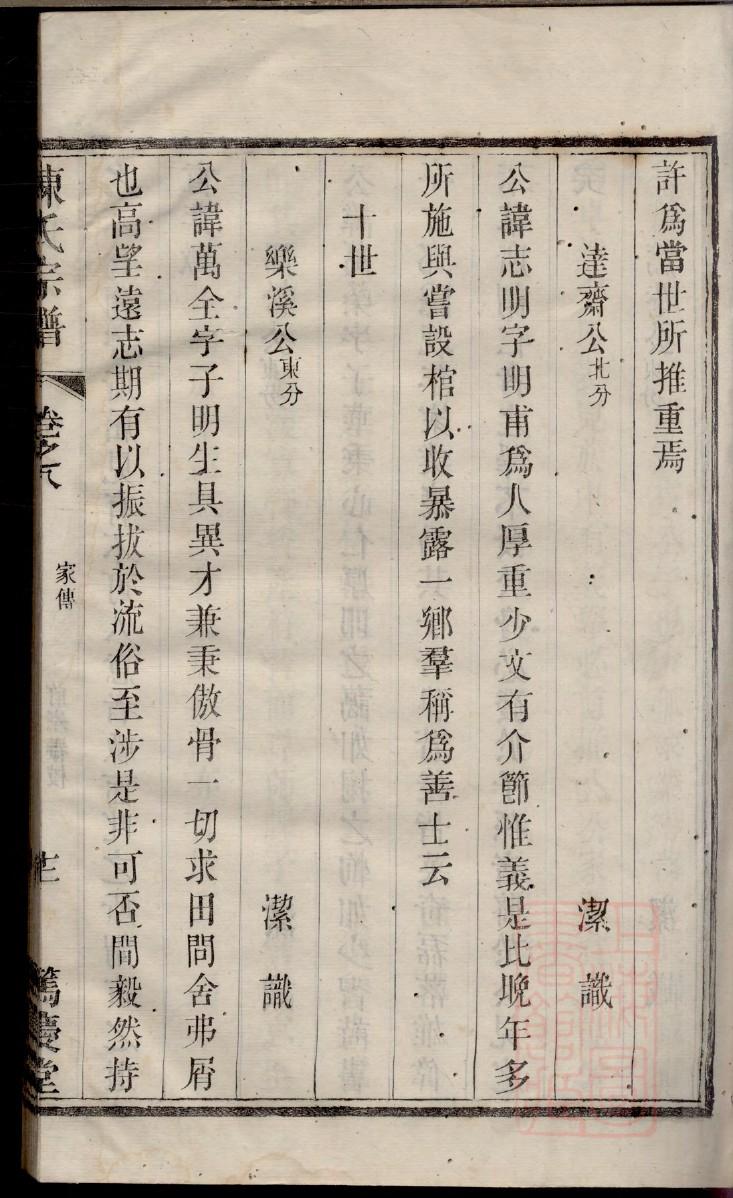 許爲當世所推重焉
達齋公北分 潔識
公諱志明字明甫爲人厚重少文有介節惟義是比晚年多
所施與嘗設棺以收暴露一鄉羣稱爲善士云
十世
樂溪公東分 潔識
公諱萬全字子明生具異才兼秉傲骨一切求田問舍弗屑
也高望遠志期有以振拔於流俗至涉是非可否間毅然持
陳氏宗譜 卷之八 家傳 篤慶堂